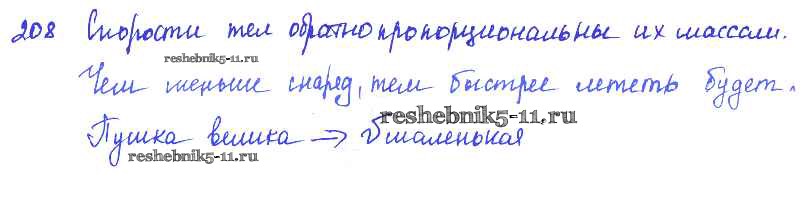 208 Скорости тел обратно пропорциональны их массам.
reshebnik5-11.ru
Чем меньше снаряд, тем быстрее лететь будет.
reshebnik5-11.ru
Пушка велика → υ маленькая
reshebnik5-11.ru